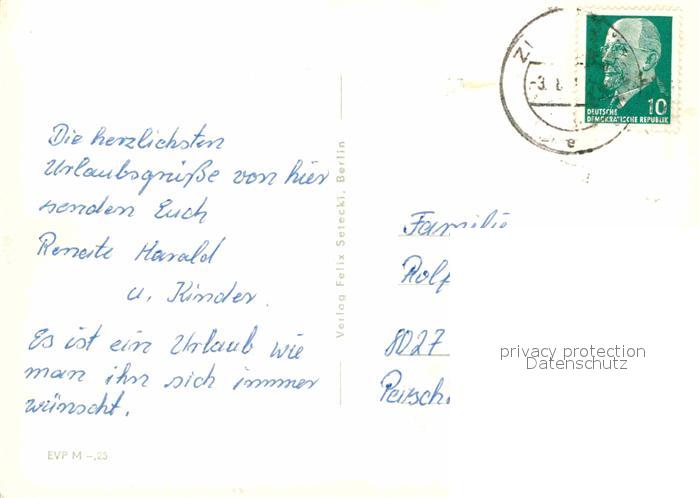 Die herzlichsten
Urlaubsgrüße von hier
senden Euch
Renate Harald
u. Kinder.
Es ist ein Urlaub wie
man ihn sich immer
wünscht.
EVP M -,25
Verlag Felix Setecki, Berlin
-3. 8.
a
10
DEUTSCHE
DEMOKRATISCHE REPUBLIK
Familie
Rolf
8027
privacy protection
Datenschutz